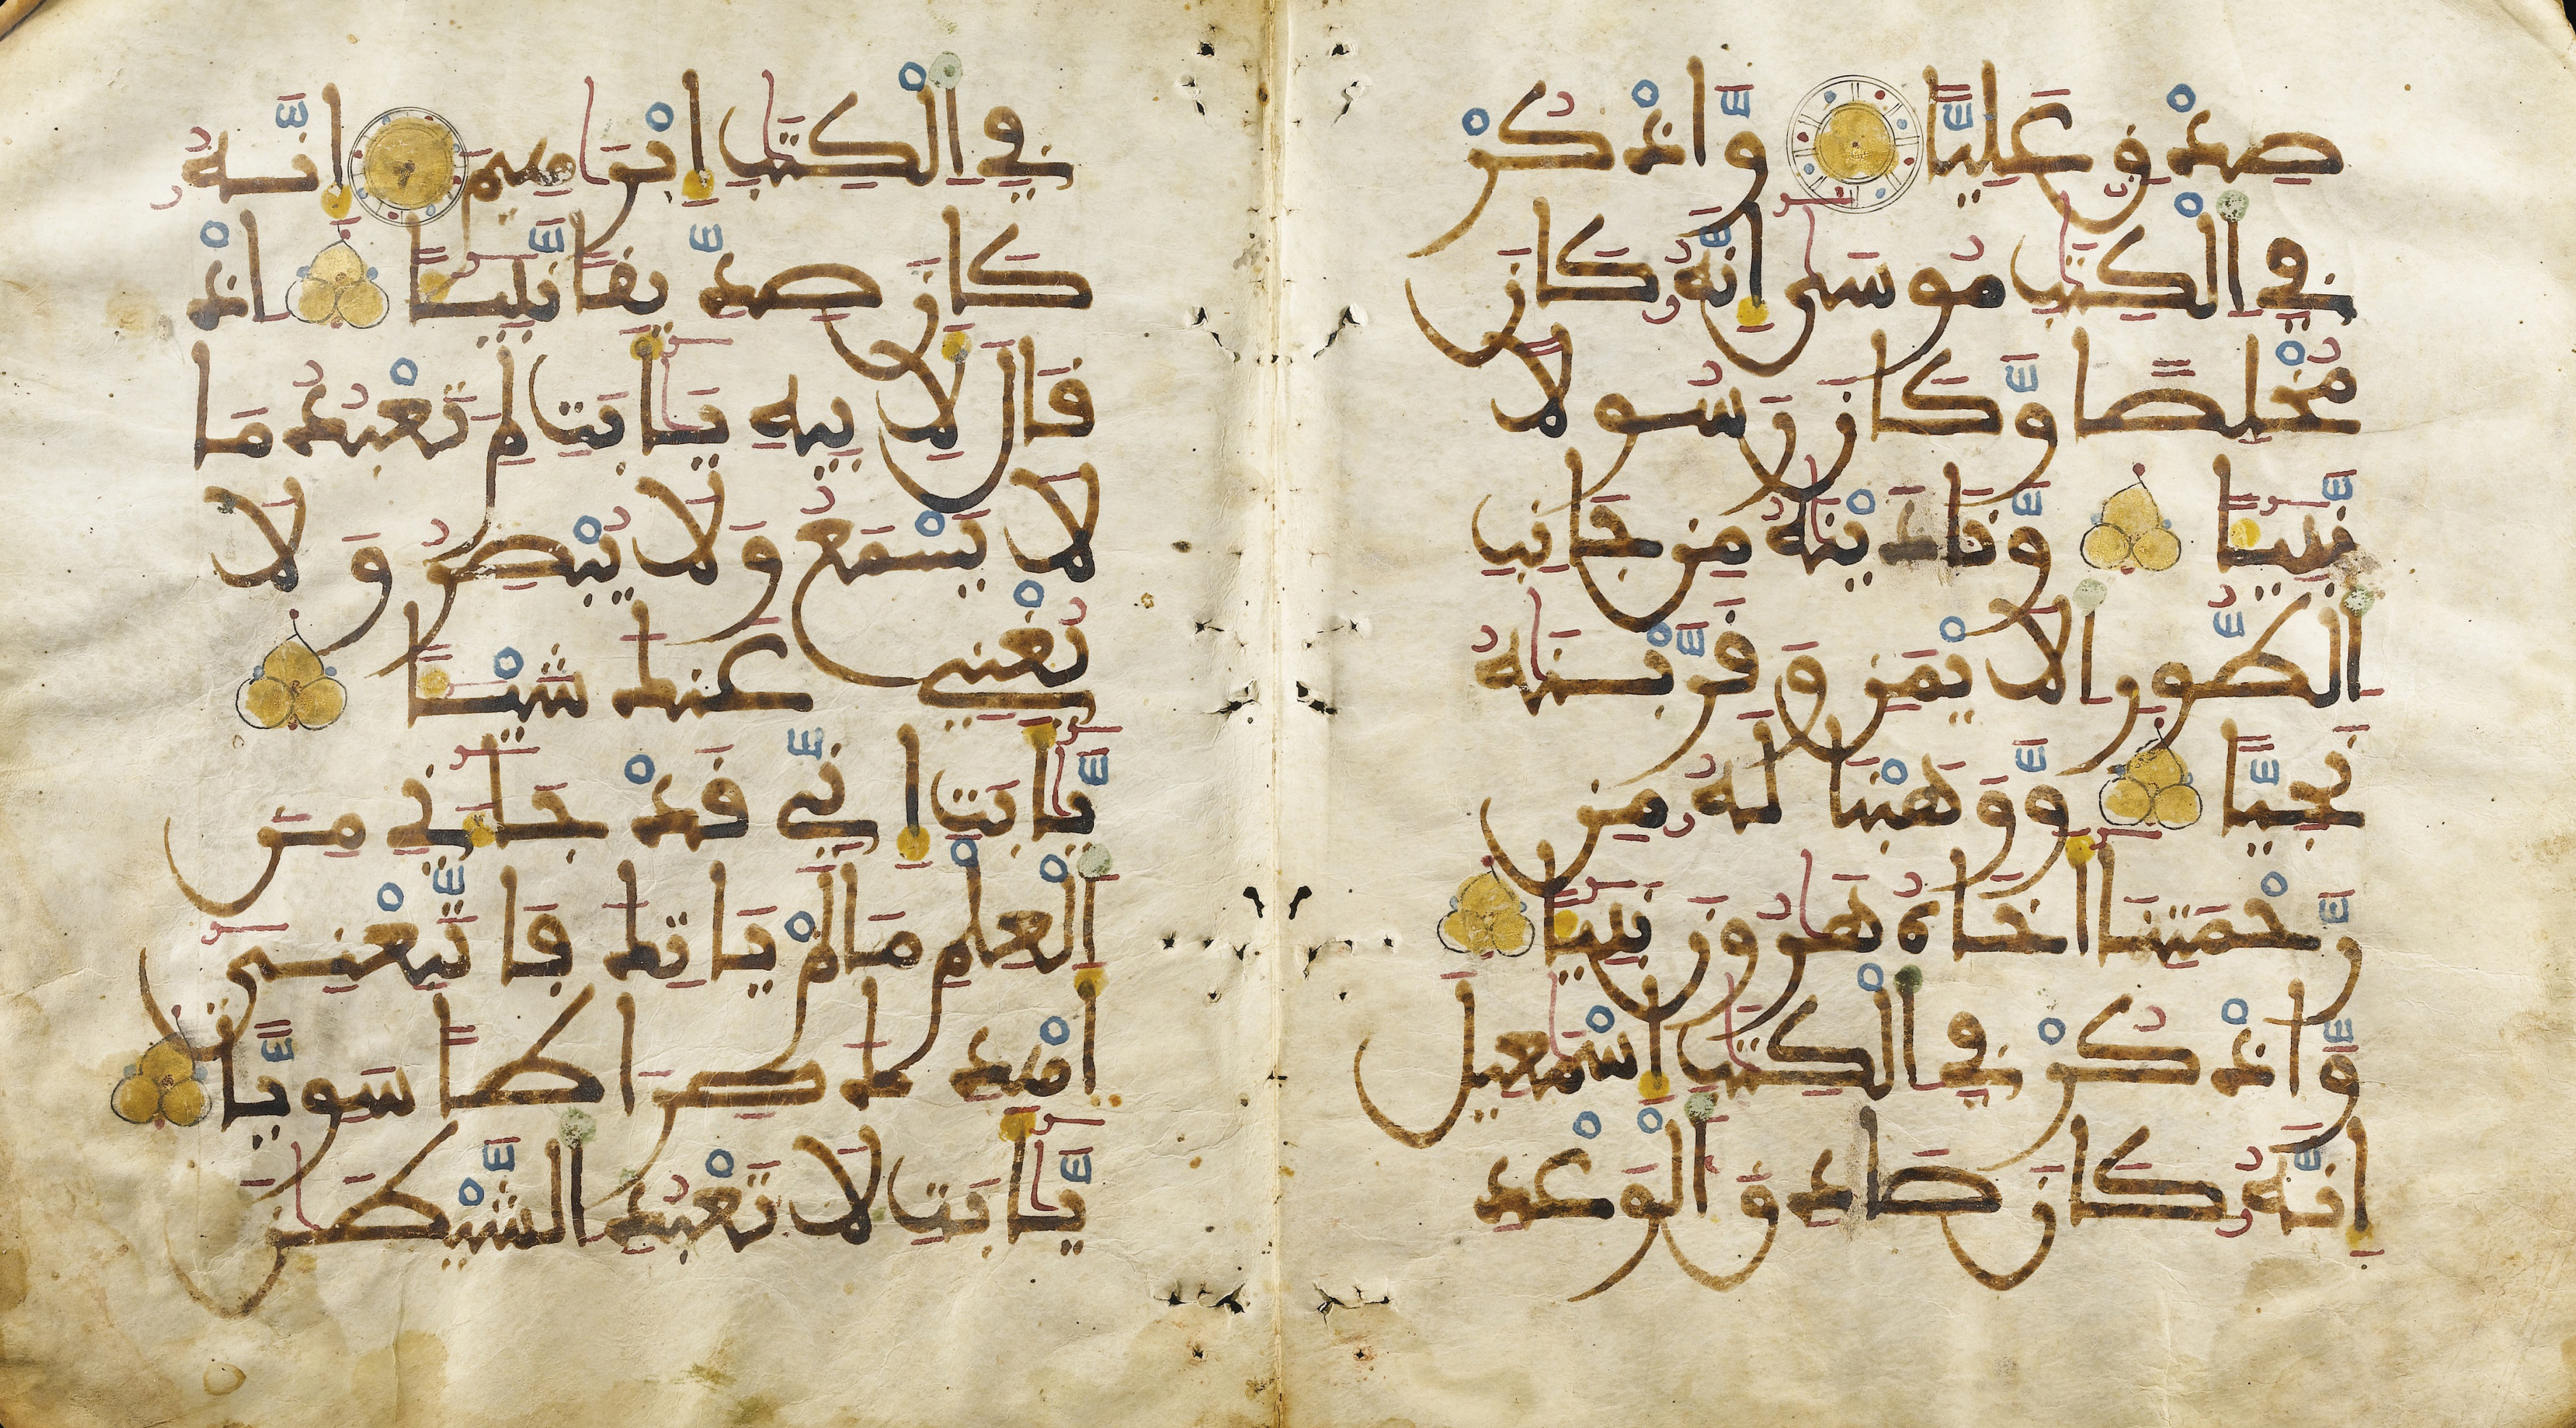 صِدْقٍ عَلِيًّا وَّاذْكُرْ
فِي الْكِتَٰبِ مُوسَىٰ إِنَّهُۥ كَانَ
مُخْلِصًا وَّكَانَ رَسُولًا
نَّبِيـًٔا وَّنَٰدَيْنَٰهُ مِن جَانِبِ
الطُّورِ الَايْمَنِ وَقَرَّبْنَٰهُ
نَجِيًّا وَّوَهَبْنَا لَهُۥ مِن
رَّحْمَتِنَا أَخَاهُ هَٰرُونَ نَبِيـًٔا
وَّاذْكُرْ فِي الْكِتَٰبِ إِسْمَٰعِيلَ
إِنَّهُۥ كَانَ صَادِقَ الْوَعْدِ
فِي الْكِتَٰبِ إِبْرَٰهِيمَ إِنَّهُۥ
كَانَ صِدِّيقًا نَّبِيـًٔا اذْ
قَالَ لَأِبِيهِ يَٰأَبَتِ لِمَ تَعْبُدُ مَا
لَا يَسْمَعُ وَلَا يُبْصِرُ وَلَا
يُغْنِي عَنكَ شَيْـًٔا
يَّٰأَبَتِ إِنِّي قَدْ جَآءَنِي مِنَ
الْعِلْمِ مَا لَمْ يَاتِكَ فَاتَّبِعْنِي
أَهْدِكَ صِرَاطًا سَوِيًّا
يَّٰأَبَتِ لَا تَعْبُدِ الشَّيْطَٰنَ